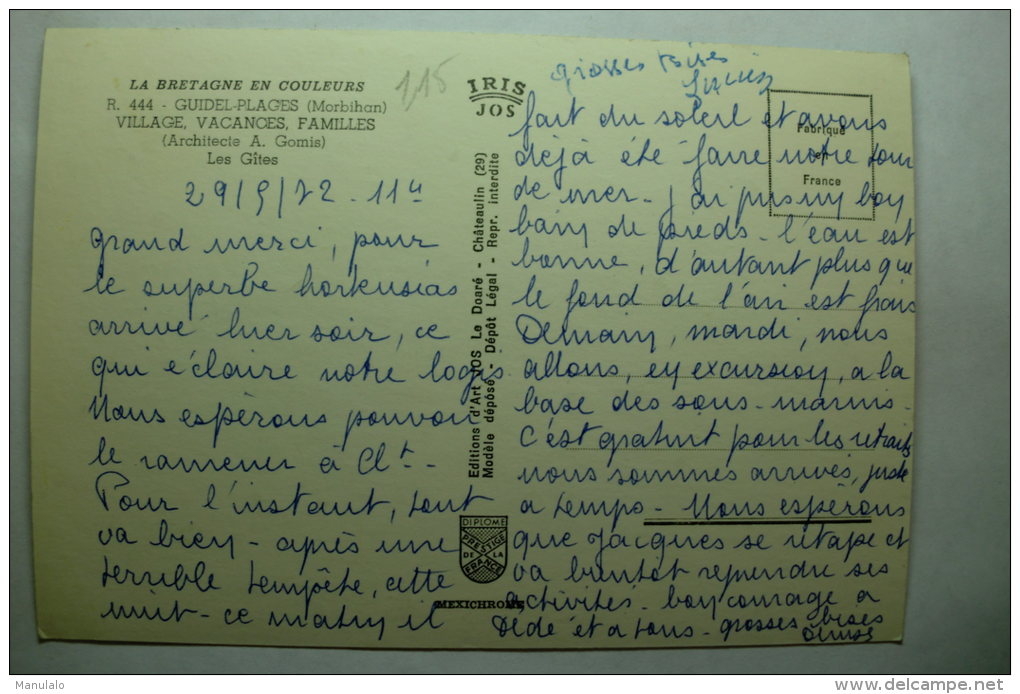 LA BRETAGNE EN COULEURS
R. 444 - GUIDEL-PLAGES (Morbihan)
VILLAGE, VACANCES, FAMILLES
(Architecte A. Gomis)
Les Gîtes
1,15
29/5/72 - 11H
grand merci, pour
le superbe hortensias
arrivé hier soir, ce
qui éclaire notre logis
Nous espérons pouvoir
le ramener à Clt -
Pour l'instant, tout
va bien - après une
terrible tempête, cette
nuit - ce matin il
IRIS
JOS
Editions d'Art JOS Le Doaré - Châteaulin (29)
Modèle déposé - Dépôt Légal - Repr. interdite
DIPLOME
PRESTIGE
DE LA
FRANCE
MEXICHROME
Fabriqué
en
France
fait du soleil et avons
déjà été faire notre tour
de mer - j'ai pris un bon
bain de pieds - l'eau est
bonne, d'autant plus que
le fond de l'air est frais
Demain, mardi, nous
allons, en excursion, a la
base des sous-marins -
c'est gratuit pour les retraités
nous sommes arrivés, juste
a temps - Nous espérons
que Jacques se retape et
va bientot reprendre ses
activités - bon courage a
Dédé et a tous - grosses bises
Denise
grosses bises
Lucien
Manulalo
delcampe.net